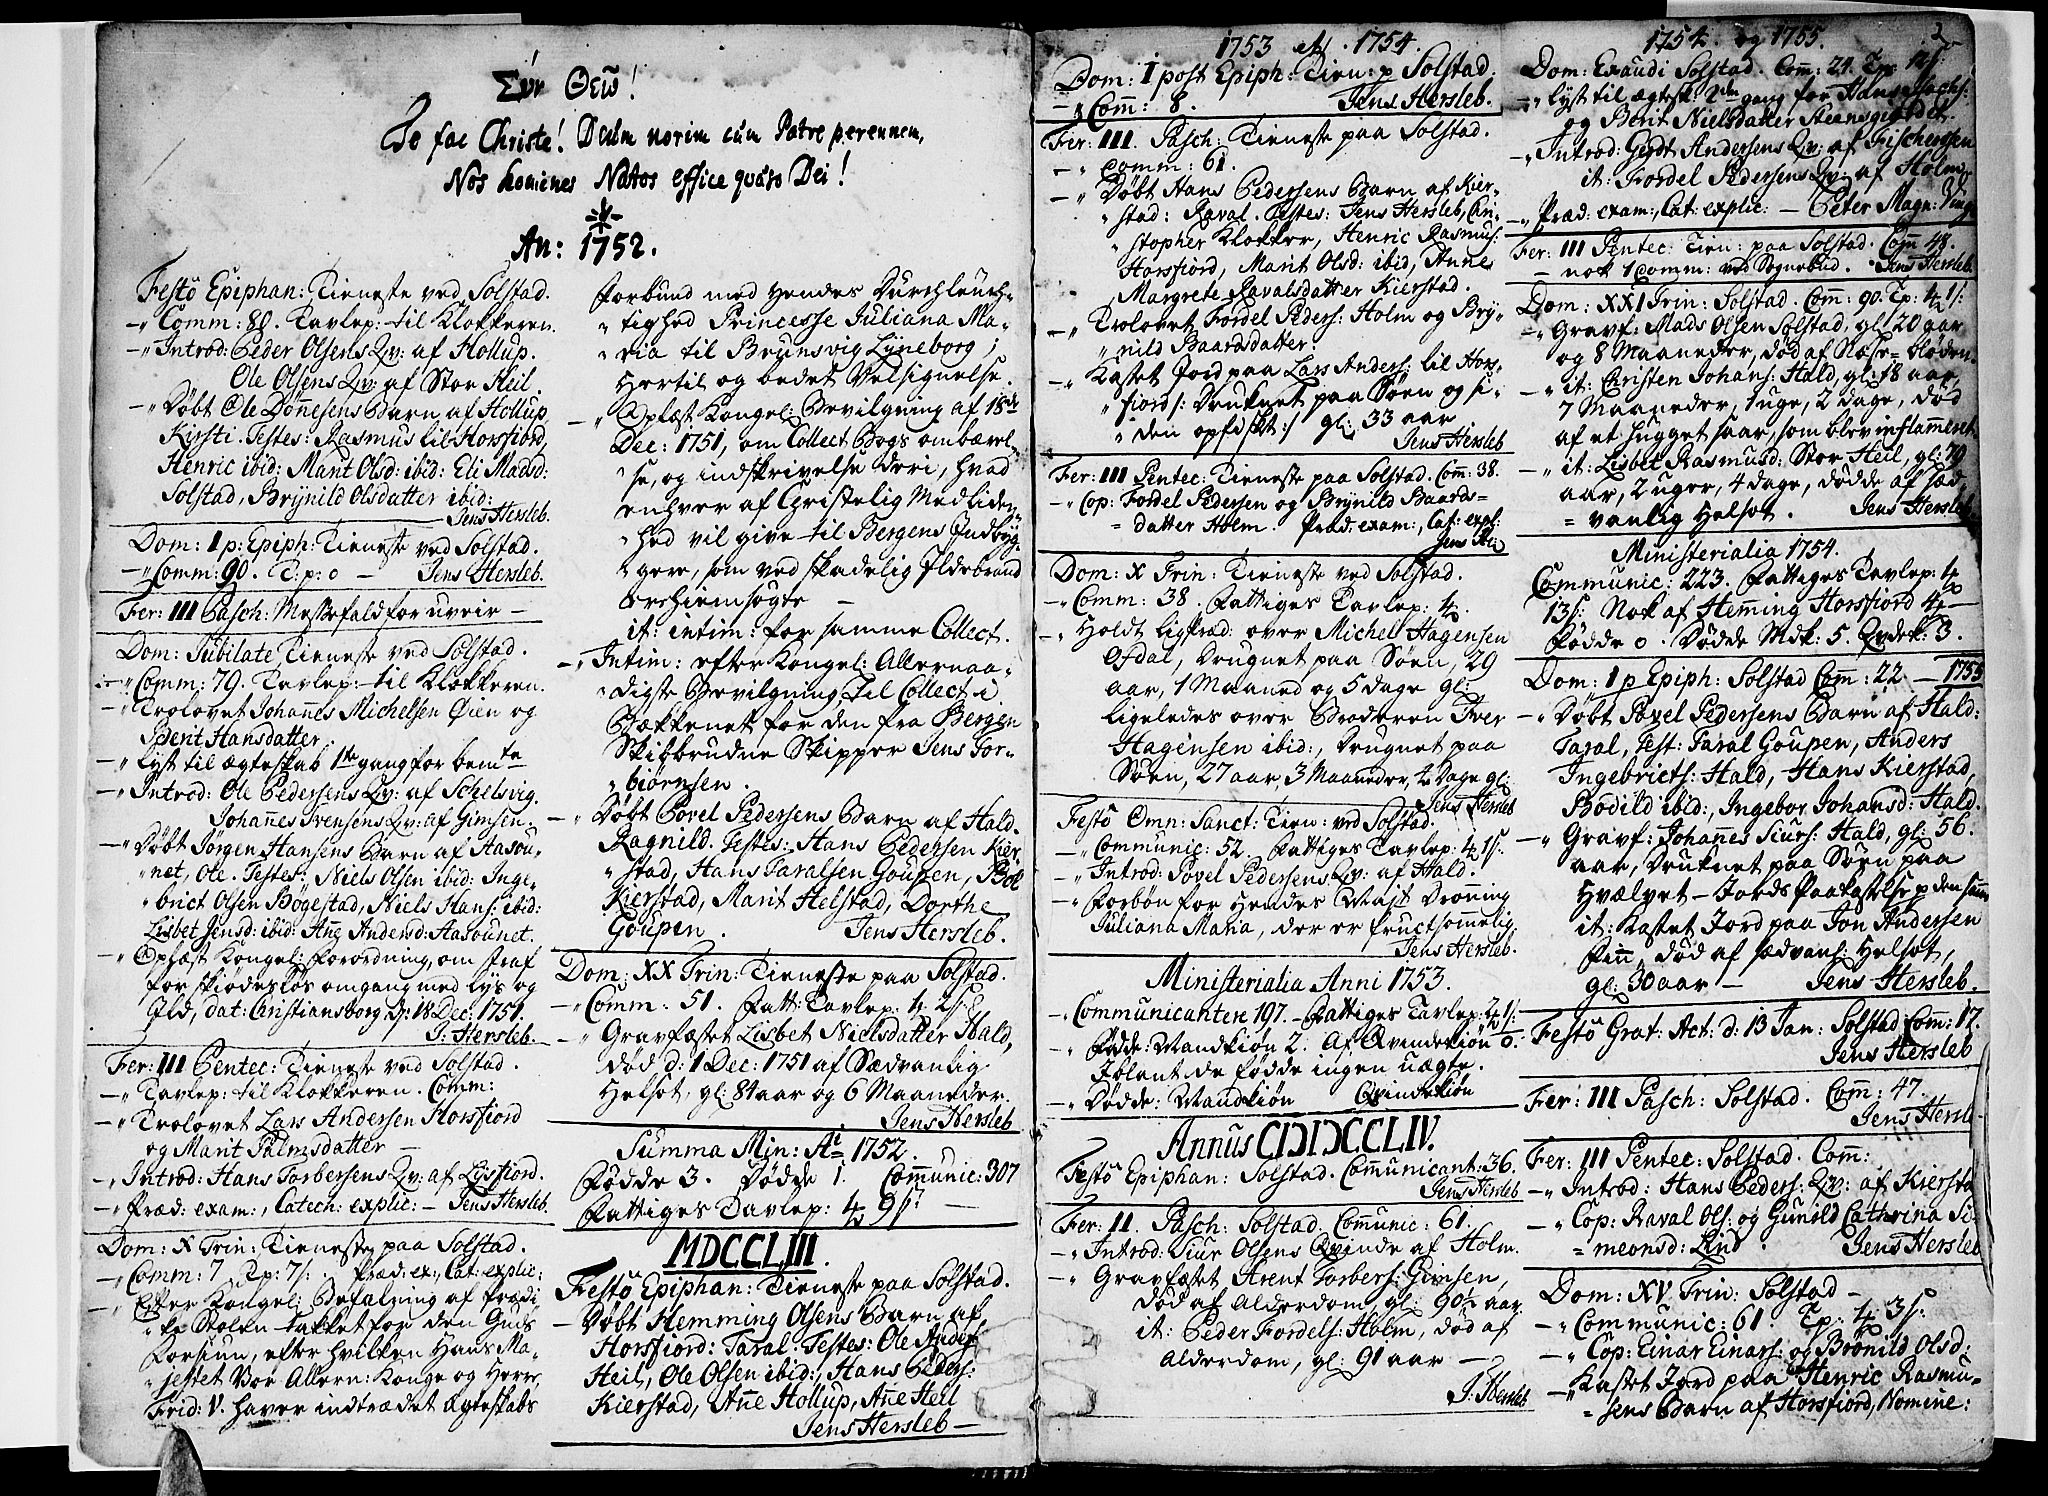 Σὺν Θεῷ!
Te fac Christe! Deum norim cum Patre perennem,
Nos homines Natos effice quæso Dei!
An: 1752.
Festô Epiphan: Tieneste ved Solstad.
-" Comm: 80. Tavlep: til Klokkeren.
-" Introd: Peder Olsens Qv: af Hollup.
Ole Olsens Qv: af Stor Heil.
-" Døbt Ole Dønnesens Barn af Hollup,
Kirsti. Testes: Rasmus lil Horsfiord,
Henric ibid: Marit Olsd: ibid: Eli Madsd:
Solstad, Brÿnild Olsdatter ibid:
Jens Hersleb.
Dom: I p: Epiph: Tieneste ved Solstad.
-" Comm: 90. T: p: 0 - Jens Hersleb.
Fer: III Pasch: Messefald for uveir -
Dom: Jubilate Tieneste ved Solstad.
-" Comm: 79. Tavlep: til Klokkeren.
-" Trolovet Johannes Michelsen Øien og
Berit Hansdatter.
-" Lyst til ægteskab 1ste gang for bemte
-" Introd: Ole Pedersens Qv: af Schelsvig.
Johannes Svensens Qv: af Gimsen.
-" Døbt Jørgen Hansens Barn af Aasou-
" net, Ole. Testes: Niels Olsen ibid: Inge-
" brict Olsen Bøgestad, Niels Hans: ibid:
Lisbet Jensd: ibid: Anne Andersd: Aasounet.
-" Oplæst Kongel: Forordning, om straf
for skiødesløs omgang med Lys og
Ild, dat: Christiansborg d: 18 Dec: 1751.
J: Hersleb.
Fer: III Pentec: Tieneste ved Solstad.
-" Tavlep: til Klokkeren. Comm:
-" Trolovet Lars Andersen Horsfiord
og Marit Palmsdatter -
-" Introd: Hans Torbersens Qv: af Lisfiord.
-" Præd: exam:, Catech: explic: - Jens Hersleb.
Dom: X Trin: Tieneste paa Solstad.
-" Comm: 7 Tp: 7 s: Præd: ex:, Cat: explic:
-" Efter Kongel: Befalning af Prædi-
" ke Stolen takket for den Guds
Forsiun, efter hvilken Hans Ma-
" jestet Vor Allern: Konge og Herre,
Frid: V. haver indtrædet Ægteskabs
Forbund med Hendes Durchleuch-
" tighed Princesse Juliana Ma-
" ria til Brunsvig Lÿneborg;
Hertil og bedet Velsignelse.
-" Oplæst Kongel: Bevilgning af 18de
Dec: 1751, om Collect Bogs ombærel-
" se, og indskrivelse deri, hvad
enhver af Christelig Medliden-
" hed vil give til Bergens Indbÿg-
" gere, som ved skadelig Ildebrand
ere hiemsøgte -
it: intim: for samme Collect.
-" Intim: efter Kongel: Allernaa-
" digste Bevilgning til Collect i
Bækkenet for den fra Bergen
Skibbrudne Skipper Jens Tor-
" biørnsen.
-" Døbt Povel Pedersens Barn af Hald.
Ragnild. Testes: Hans Pedersen Kier-
" stad, Hans Taralsen Goupen, Bol
Kierstad, Marit Helstad, Dorthe
Goupen. Jens Hersleb.
Dom: XX Trin: Tieneste paa Solstad.
-" Comm: 51. Fatt: Tavlep: 4. 2 s:
-" Gravfæstet Lisbet Nielsdatter Hald,
død d: 1 Dec: 1751 af Sædvanlig
Helsot, gl: 84 aar og 6 Maaneder.
Jens Hersleb
Summa Min: Ai 1752.
Fødde 3. Dødde 1. Communic: 307
Fattiges Tavlep: 4 9 s: -
MDCCLIII.
Festô Epiphan: Tieneste paa Solstad.
- Døbt Hemming Olsens Barn af
Horsfiord: Taral: Testes: Ole Anders:
Heil, Ole Olsen ibid:, Hans Peders:
Kierstad, Anne Hollup, Anne Heil
Jens Hersleb -
1753 et 1754.
Dom: I post Epiph: Tien: p Solstad.
-" Comm: 8. Jens Hersleb.
Fer: III. Pasch: Tieneste paa Solstad.
-" Comm: 61.
-" Døbt Hans Pedersens Barn af Kier-
" stad: Raval. Testes: Jens Hersleb, Cri-
" stopher Klokker, Henric Rasmus:
Horsfiord, Marit Olsd: ibid, Anne
Margrete Ravalsdatter Kierstad.
-" Trolovet Fordel Peders: Holm og Brÿ-
" nild Baardsdatter.
-" Kastet Jord paa Lars Anders: lil Hors-
" fiord: Druknet paa Søen og si-
" den opfisket: gl: 33 aar
Jens Hersleb
Fer: III Pentec: Tieneste paa Solstad. Comm: 38.
-" Cop: Fordel Pedersen og Brÿnild Baards-
= datter Holm. Præd: exam:, Cat: expl:
Dom: X Trin: Tieneste ved Solstad.
-" Comm: 38. Fattiges Tavlep: 4.
-" Holdt ligpræd: over Michel Hagensen
Ofdal, Drugnet paa Søen, 29
aar, 1 Maaned og 5 dage gl:
ligeledes over Broderen Iver
Hagensen ibid:, Drugnet paa
Søen, 27 aar, 3 Maaneder, 2 Dage gl:
Jens Hersleb
Festô Omn: Sanct: Tien: ved Solstad.
-" Communic: 52. Fattiges Tavlep: 4 1 s:
-" Introd: Povel Pedersens Qv: af Hald.
-" Forbøn for Hendes Majt Dronning
Juliana Maria, der er fructsommelig.
Jens Hersleb.
Ministerialia Anni 1753.
-" Communicantere 197. - Fattiges Tavlep: 2 1 s:
-" Fødde: Mandkiøn 2. Af Qvindekiøn 0.
Iblant de fødde ingen uægte.
-" Dødde: Mandkiøn Qvindekiøn
Annus CIƆIƆCCLIV.
Festô Epiphan: Solstad. Communicant: 36.
Jens Hersleb
Fer: II. Pasch: Solstad. Communic: 61.
-" Introd: Siur Olsens Qvinde af Holm.
-" Gravfæstet Arent Torbers: Gimsen,
død af Alderdom, gl: 90½ aar.
it: Peder Fordels: Holm, død af
Alderdom, gl: 91 aar -
J: Hersleb
1754 og 1755.
Dom: Exaudi Solstad. Comm: 24. Tp:
-" lyst til ægtesk: 2den gang for Hans
og Berit Nielsdatter
-" Introd: Gert Andersens Qv: af Fischerosen
it: Fordel Pedersens Qv: af Holm.
-" Præd: exam:, Cat: explic: - Peter Magn:
Fer: III Pentec: Tien: paa Solstad. Comm 48.
- nok 1 Comm: ved Sognebud. Jens Hersleb
Dom: XXI Trin: Solstad. Comm: 90. Tp: 4 1 s:
-" Gravf: Mads Olsen Solstad, gl: 20 aar
og 8 Maaneder, død af Næse=bløden.
-" it: Christen Johans: Hald, gl: 18 aar,
7 Maaneder, 1 uge, 2 dage, død
af et hugget saar, som blev inflammeret.
-" it: Lisbet Rasmusd: Stor Heil, gl: 79
aar, 2 uger, 4 dage, dødde af sæd-
= vanlig Helsot. Jens Hersleb
Ministerialia 1754.
Communic: 223. Fattiges Tavlep: 4
13 s: Nok af Hemming Horsfiord 4 -
Fødde 0. Dødde Mdk: 5. Qvdek: 3.
Dom: I p Epiph: Solstad Comm: 22. - 1755
-" Døbt Povel Pedersens Barn af Hald:
Taral, Test: Taral Goupen, Anders
Ingebricts: Hald, Hans Kierstad,
Bodild ibid:, Ingebor Johansd: Hald.
-" Gravf: Johannes Siurs: Hald, gl: 56.
aar, Druknet paa Søen paa
Hvælvet - Jords Paakastelse p den samm
it: Kastet Jord paa Jon Andersen
Finn, død af sædvanl: Helsot,
gl: 30 aar - Jens Hersleb.
Festô Grat: Act: d: 13 Jan: Solstad Comm: 17.
Jens Hersleb
Fer: III Pasch: Solstad. Comm: 47.
Jens Hersle
Fer: III Pentec: Solstad. Comm:
-" Introd: Hans Peders: Qv: af Kiersta
-" Cop: Raval Ols: og Gunild Cathrina Si-
= meonsd: Lind. Jens Hersleb
Dom: XV Trin: Solstad -
-" Communic: 61. Tp: 4 3 s:
-" Cop: Einar Einars: og Brønild Olsd:
-" Kastet Jord paa Henric Rasmu-
= sens Barn af Horsfiord, Nomine: